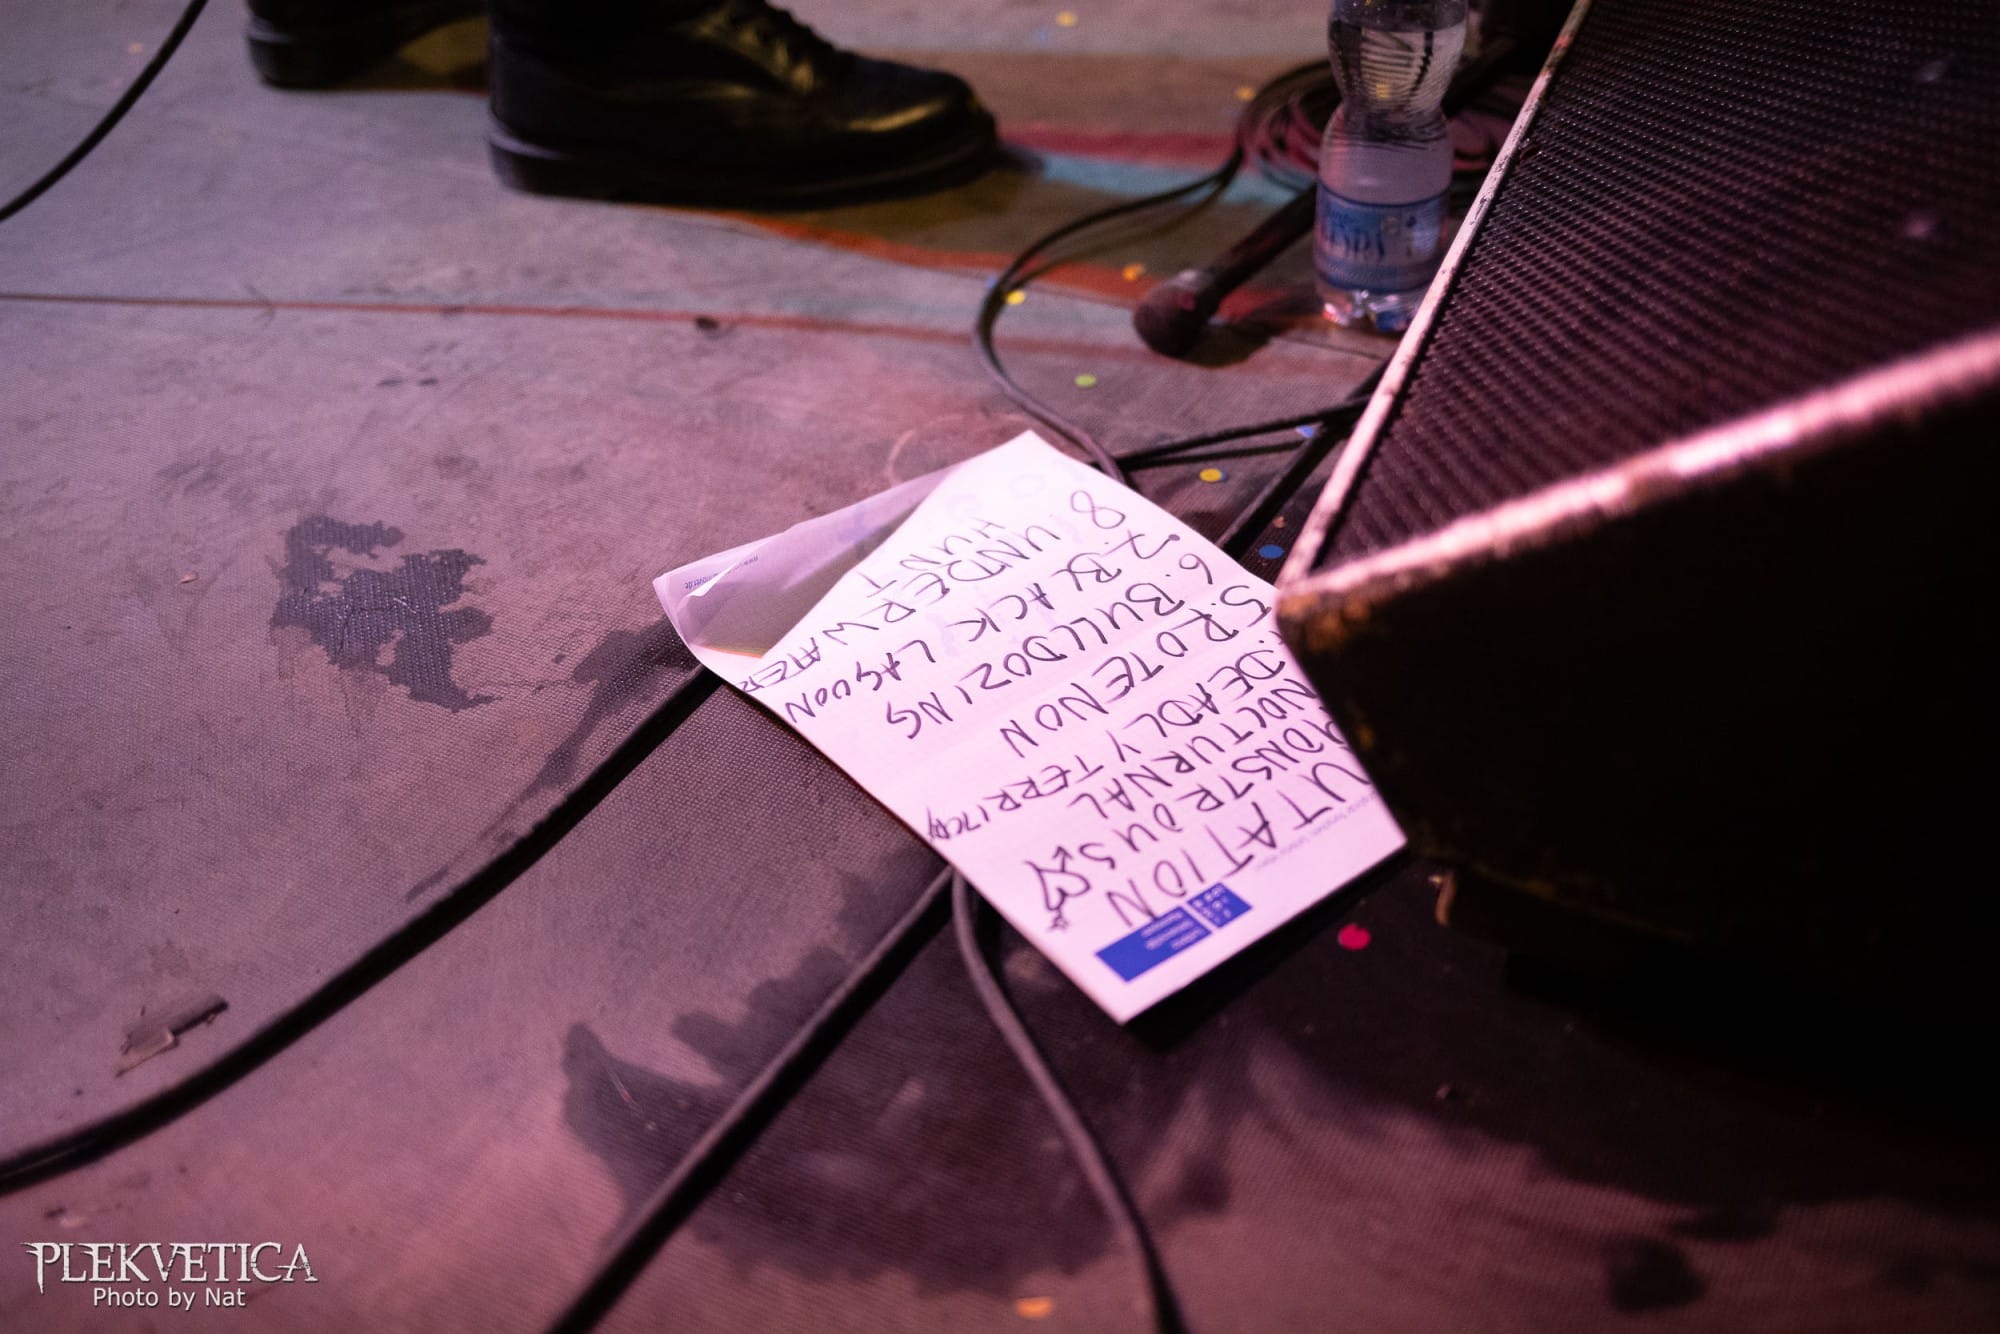 UTATION
ONSTROUS
NOCTURNAL
DEADLY TERRITORY
5. ROTENON
6. BULLDOZING
7. BLACK LAGOON
8 UNDERWATER
HUNT
PLEKVETICA
Photo by Nat